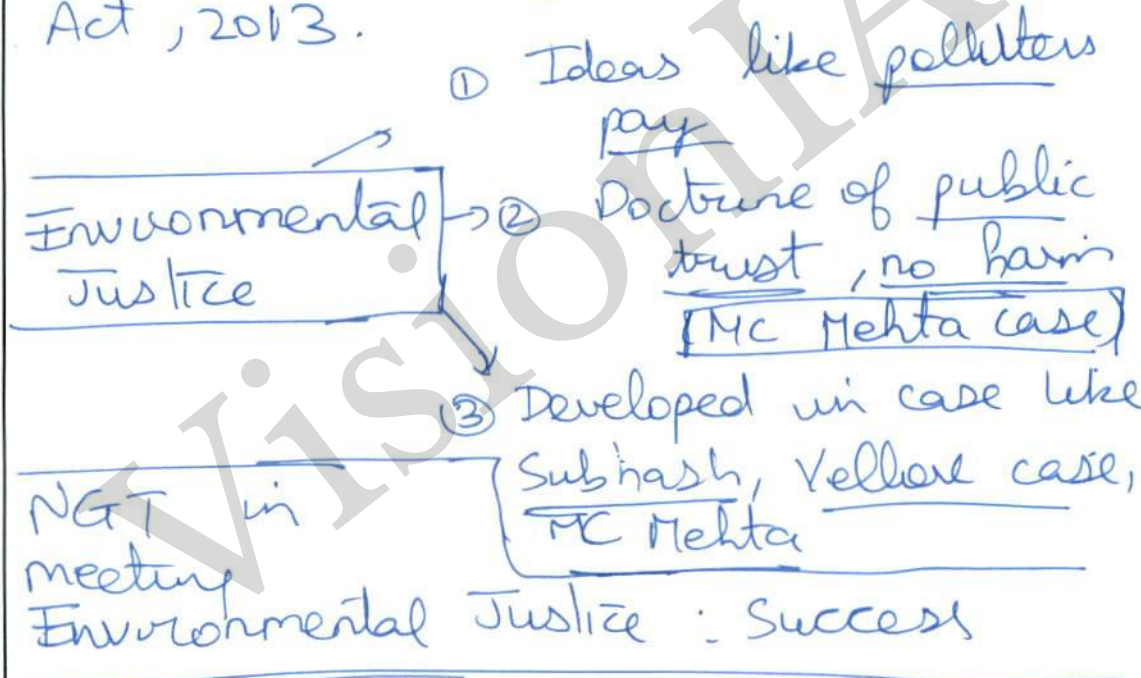 Act, 2013.
① Ideas like polluters
pay
Environmental
Justice
② Doctrine of public
trust, no harm
(MC Mehta case)
③ Developed in case like
Subhash, Vellore case,
MC Mehta
NGT in
meeting
Environmental Justice : Success
VisionIA